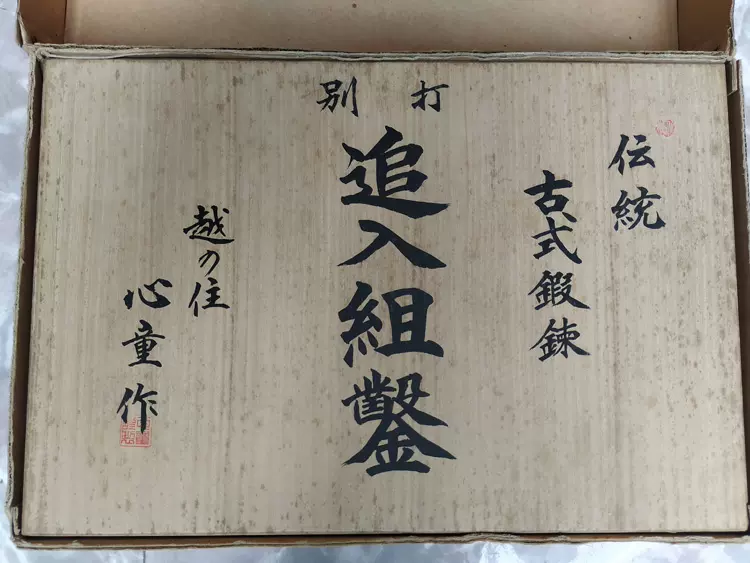 伝統
古式鍛錬
別打
追入組鑿
越の住
心童作